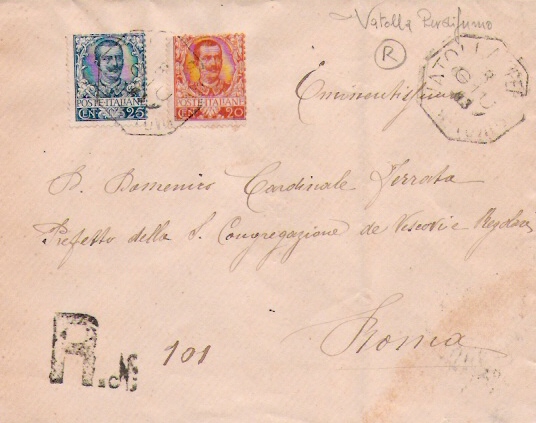 Vatolla Perdifumo
R
POSTE ITALIANE
CNT 25
POSTE ITALIANE
CNT 20
VATOLLA
Eminentissimo
S. Domenico Cardinale Ferrata
Prefetto della S. Congregazione de Vescovi e Regolari
Roma
R. N.
101